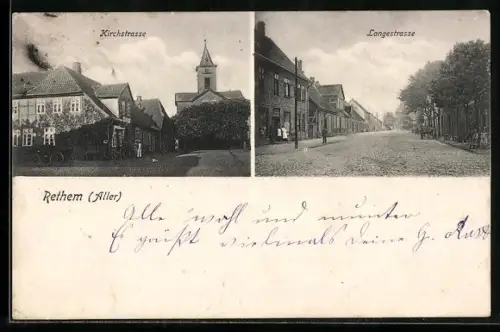 Kirchstrasse
Langestrasse
Rethem (Aller)
Alle wohl und munter
Es grüßt vielmals Deine G.